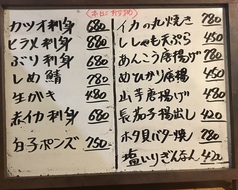 カツオ刺身 680
ヒラメ刺身 680
ぶり刺身 680
しめ鯖 780
生がき 480
赤イカ刺身 680
白子ポンズ 750
イカの丸焼き 780
ししゃも天ぷら 450
あんこう唐揚げ 780
めひかり唐揚 450
山芋唐揚げ 480
長茄子揚出し 420
ホタ貝バター焼 780
塩いりぎんなん 420